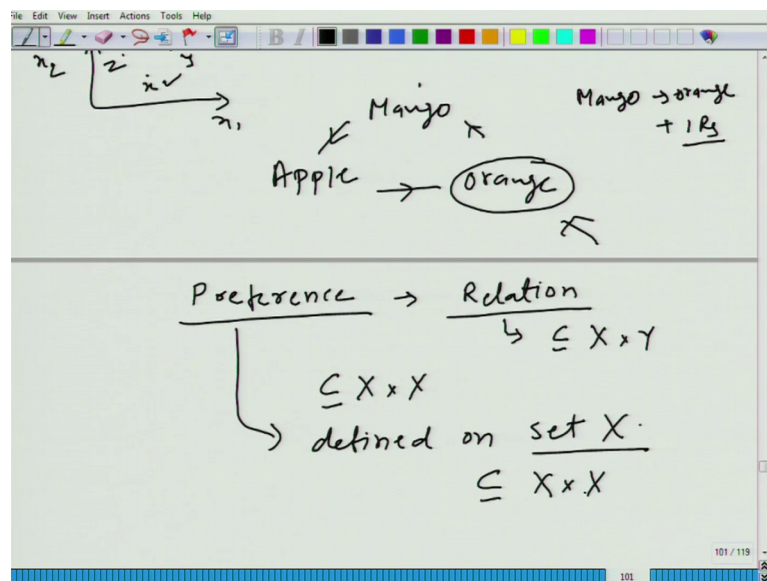 File Edit View Insert Actions Tools Help
B I
x₂ z y
x ✓
x₁
Mango
Apple → Orange
Mango → orange
+ 1 Rs
Preference → Relation
↳ ⊆ X × Y
⊆ X × X
defined on set X.
⊆ X × X
101 / 119
101